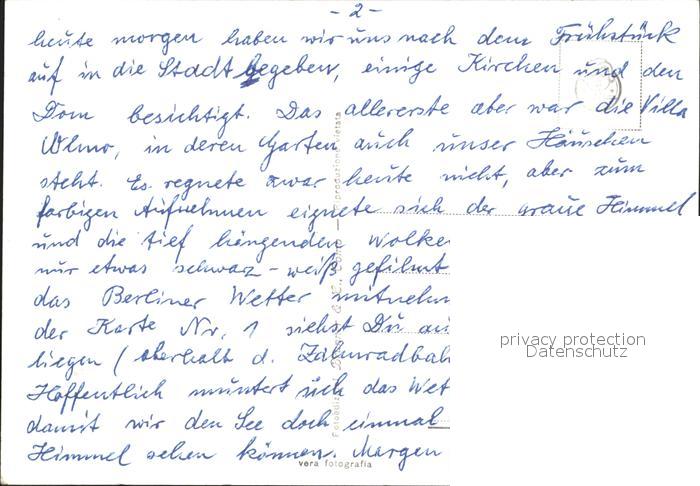 - 2 -
heute morgen haben wir uns nach dem Frühstück
auf in die Stadt begeben, einige Kirchen und den
Dom besichtigt. Das allererste aber war die Villa
Olmo, in deren Garten auch unser Häuschen
steht. Es regnete zwar heute nicht, aber zum
farbigen Aufnehmen eignete sich der graue Himmel
und die tief hängenden Wolke
nur etwas schwarz-weiß gefilmt
das Berliner Wetter mitnehm
der Karte Nr. 1 siehst Du
liegen (oberhalb d. Zahnradbah
Hoffentlich muntert sich das Wet
damit wir den See doch einmal
Himmel sehen können. Morgen
privacy protection
Datenschutz
riproduzione vietata
vera fotografia